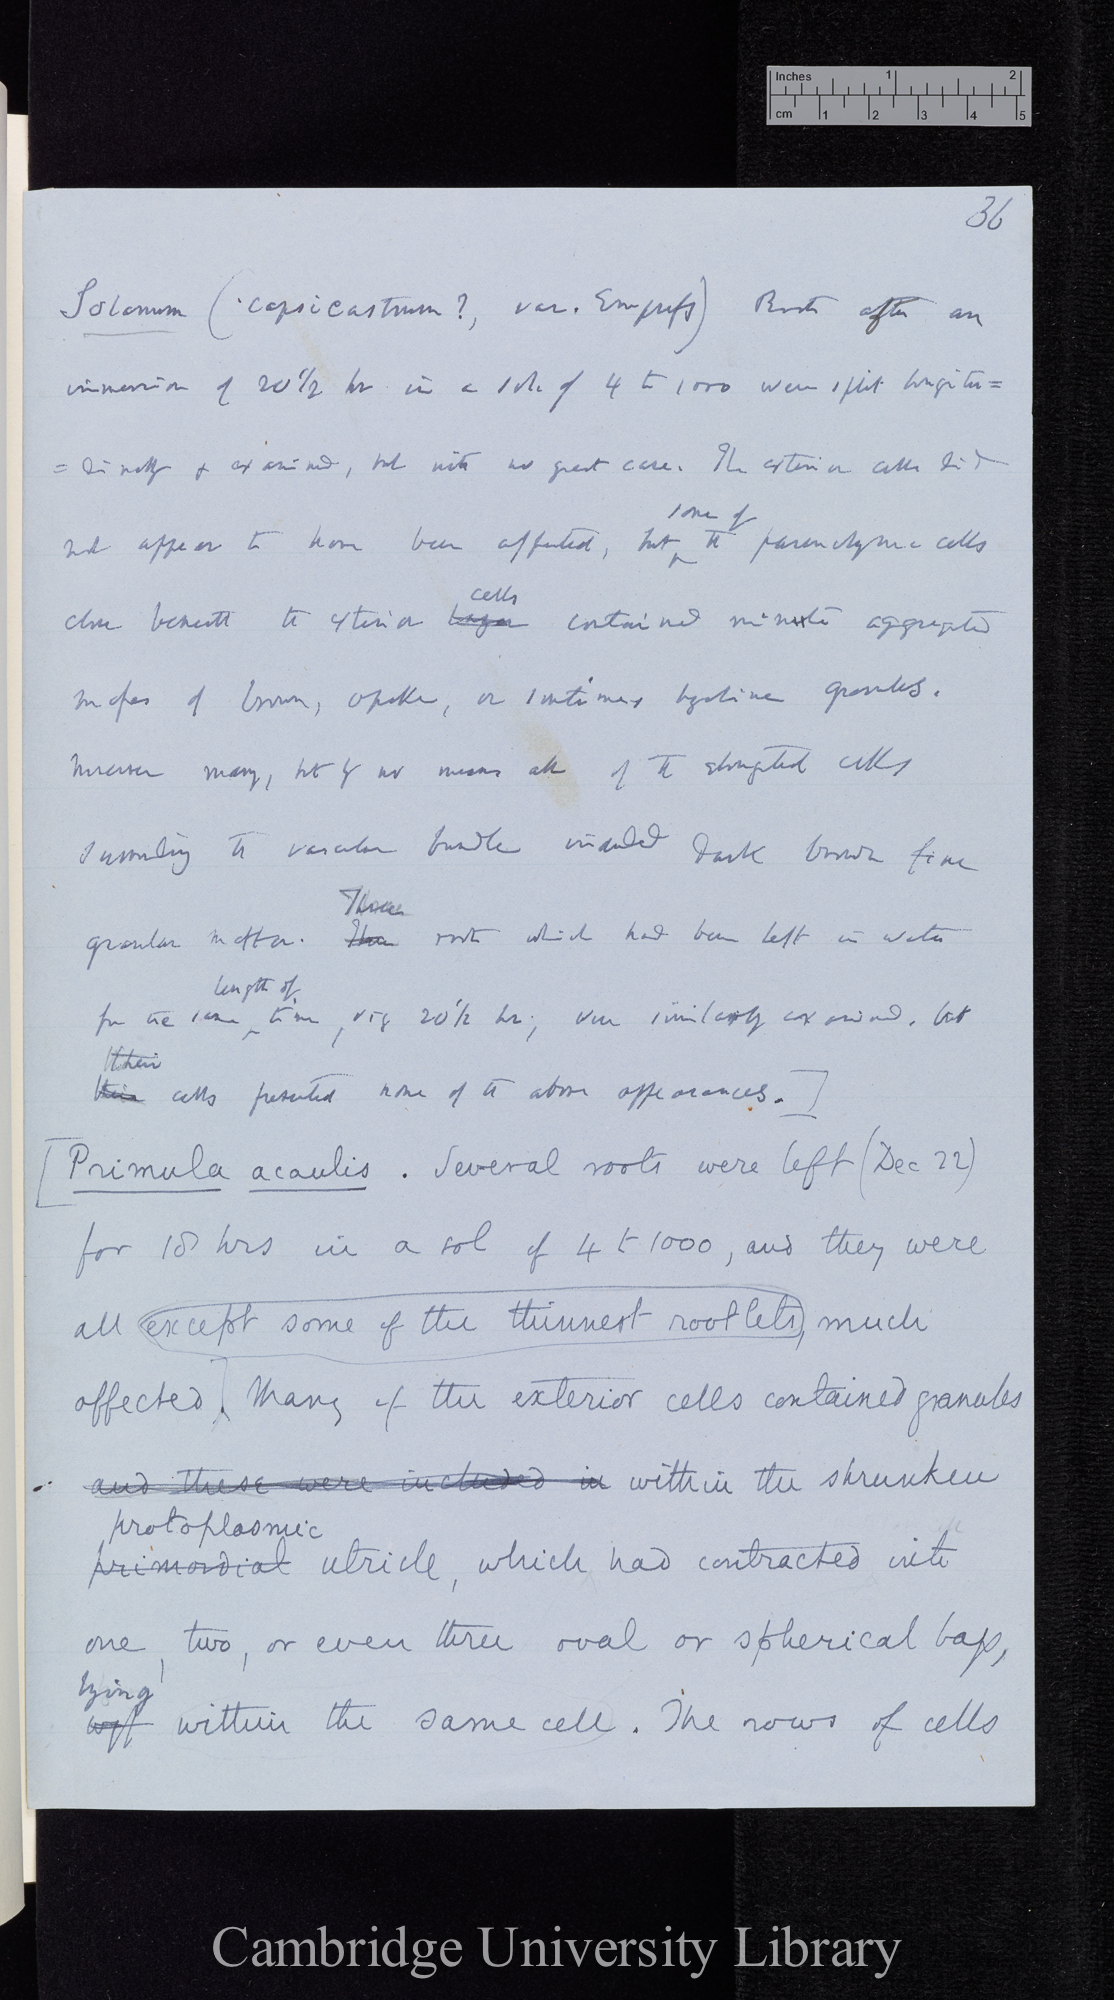 Inches 1 2
cm 1 2 3 4 5
36
Solanum (capsicastrum?, var. Empress) Roots after an
immersion of 20 1/2 hr in a sol. of 4 to 1000 were split longitu=
=dinally & examined, but with no great care. The exterior cells did
some of
not appear to have been affected, but the parenchyma cells
cells
close beneath the exterior layer contained minute aggregated
masses of brown, opake, or sometimes hyaline granules.
Moreover many, but by no means all of the elongated cells
surrounding the vascular bundle included dark brown fine
Those
granular matter. roots which had been left in water
length of
for the same time, viz 20 1/2 hr, were similarly examined, but
their
cells presented none of the above appearances.]
[Primula acaulis. Several roots were left (Dec 22)
for 18 hrs in a sol of 4 to 1000, and they were
all except some of the thinnest rootlets, much
affected. Many of the exterior cells contained granules
and these were included in within the shrunken
protoplasmic
primordial utricle, which had contracted into
one, two, or even three oval or spherical bags,
lying
within the same cell. The rows of cells
Cambridge University Library